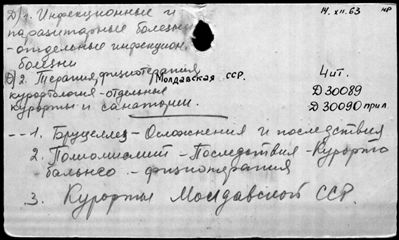 Д/1. Инфекционные и
паразитарные болезни
- отдельные инфекцион.
болезни
Д/2. Терапия, физиотерапия,
Молдавская ССР.
курортология - отдельные
курорты и санатории.
14. XII. 63
НР
4 ит.
Д 30089
Д 30090 прил
-- 1. Бруцеллез - Осложнения и последствия
2. Полиомиелит - Последствия - Курорто
- бальнео - физиотерапия
3. Курорты Молдавской ССР.